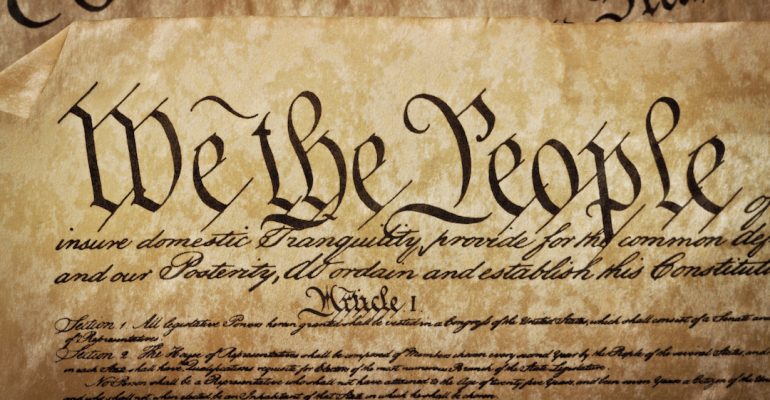 We the People of
insure domestic Tranquility, provide for the common def
and our Posterity, do ordain and establish this Constituti
Article I
Section 1. All legislative Powers herein granted shall be vested in a Congress of the United States, which shall consist of a Senate and
of Representatives.
Section 2. The House of Representatives shall be composed of Members chosen every second Year by the People of the several States, and
in each State shall have Qualifications requisite for Electors of the most numerous Branch of the State Legislature.
No Person shall be a Representative who shall not have attained to the Age of twenty five Years, and been seven Years a Citizen of the Uni
and who shall not, when elected, be an Inhabitant of that State in which he shall be chosen.